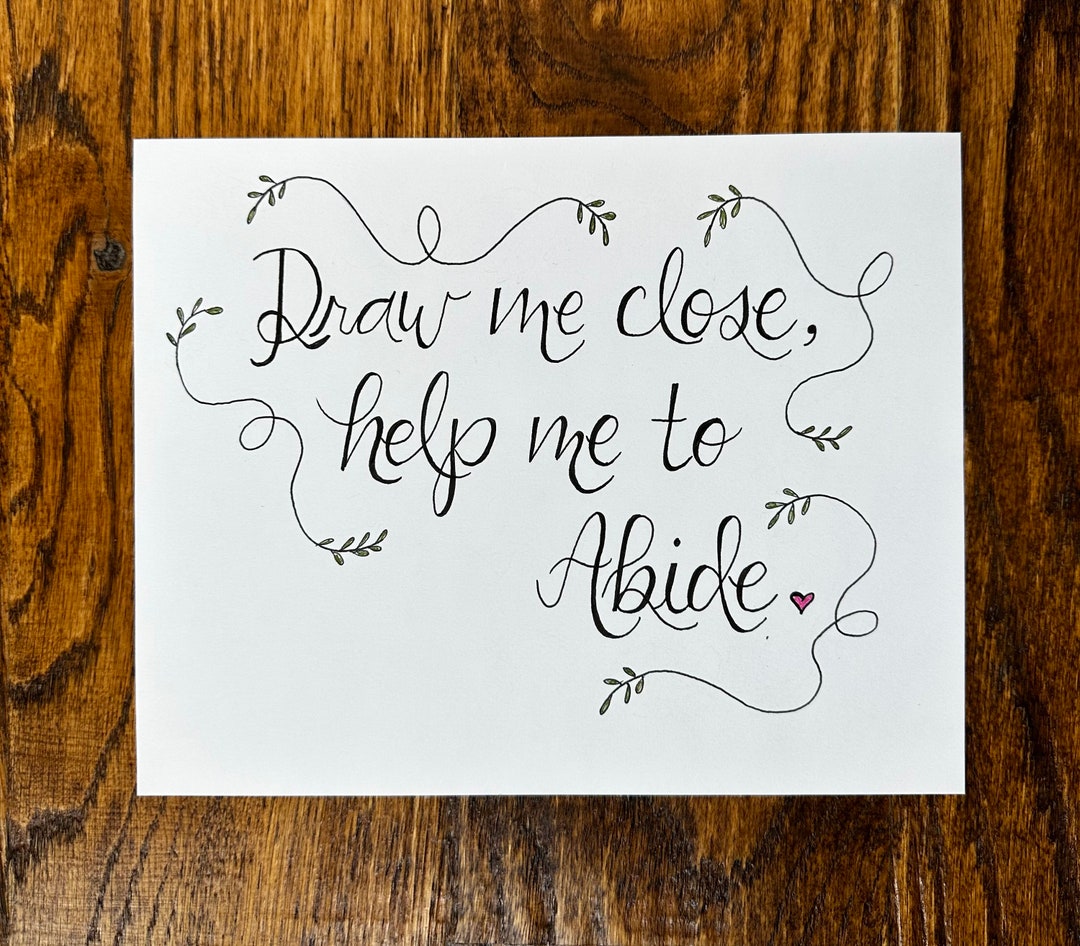 Draw me close,
help me to
Abide.